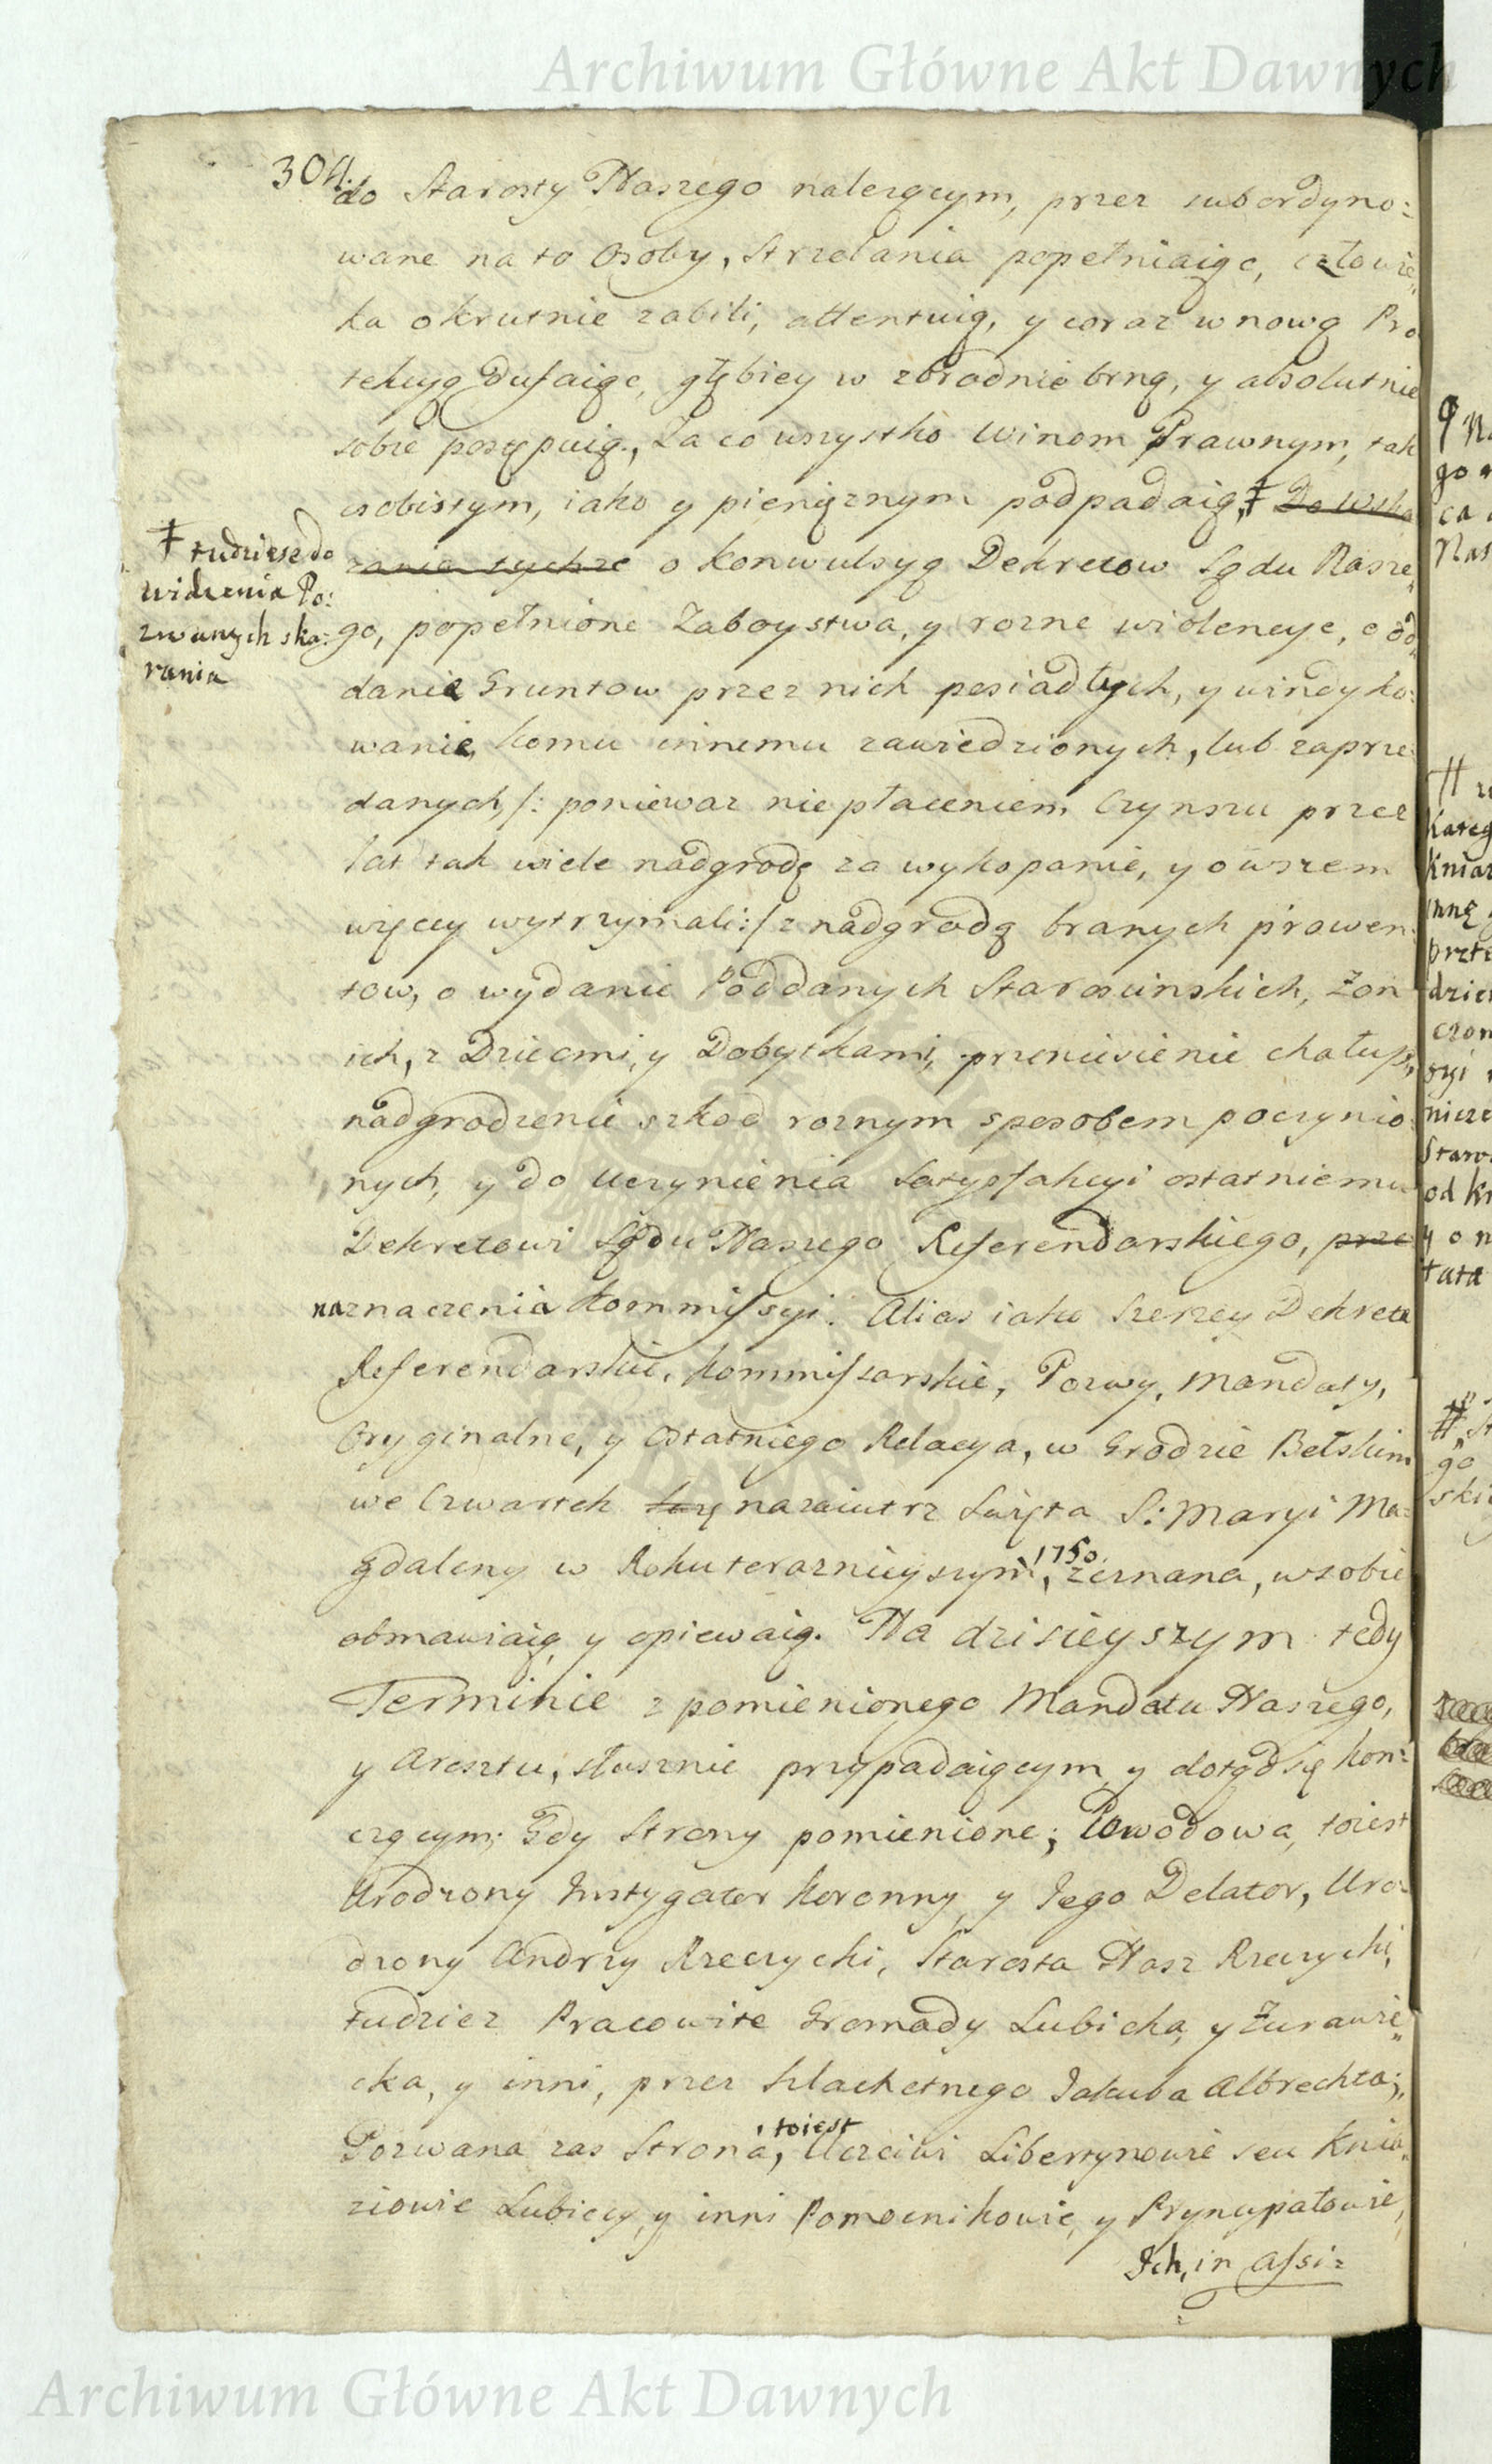 Archiwum Główne Akt Dawnych
304.
do Starosty Naszego nalezącym, przez subordyno:
wane na to Osoby, Strzelania popełniaiąc, człowie„
ka okrutnie zabili, attentuią, y coraz w nową Pro
tekcyą Dufaiąc, głębiey w zbrodnie brną, y absolutnie
sobie postępuią, Za co wszystko Winom Prawnym, tak
osobistym, iako y pieniężnym podpadaią, ‡ Do wska
zania tychze o konwulsyą Dekretow Sądu Nasze„
‡ tudziesz do
widzenia Po:
zwanych ska:
rania
go, popełnione Zaboystwa, y rozne wiolencye, o od„
danie Gruntow przez nich posiadłych, y windyko:
wanie, komu innemu zawiedzionych, lub zaprze:
danych, /: poniewaz nie płaceniem Czynszu przez
lat tak wiele nadgrodę za wykopanie, y owszem
więcey wytrzymali :/ z nadgrodą branych prowen:
tow, o wydanie Poddanych Starościnskich, Zon
ich, z Dziecmi, y Dobytkami, przeniesienie chałup,
nadgrodzenie szkod roznym sposobem poczynio:
nych, y do Uczynienia Satysfakcyi ostatniemu
Dekretowi Sądu Naszego Referendarskiego, prze
naznaczenia Kommissyi. Alias iako Szerzey Dekreta
Referendarskie, Kommissarskie, Pozwy, Mandaty,
Oryginalne, y Ostatniego Relacya, w Grodzie Bełskim
we Czwartek nazaiutrz Swięta S: Maryi Ma:
gdaleny w Roku terazniejszym, 1750. zeznana, w sobie
obmawiaią y opiewaią. Na dzisieyszym tedy
Terminie z pomienionego Mandatu Naszego,
y Aresztu, słusznie przypadaiącym, y dotąd się kon:
czącym; Gdy Strony pomienione; Powodowa, toiest
Urodzony Instygator Koronny, y Jego Delator, Uro:
dzony Andrzy Rzeczycki, Starosta Nasz Rzeczycki,
tudziez Pracowite Gromady Lubicka, y Zurawie„
cka, y inni, przez Szlachetnego Jakuba Albrechta;
Pozwana zas Strona, toiest, Uczciwi Libertynowie seu Knia„
ziowie Lubiccy, y inni Pomocnikowie, y Pryncypałowie,
Ich, in Assi:
Archiwum Główne Akt Dawnych